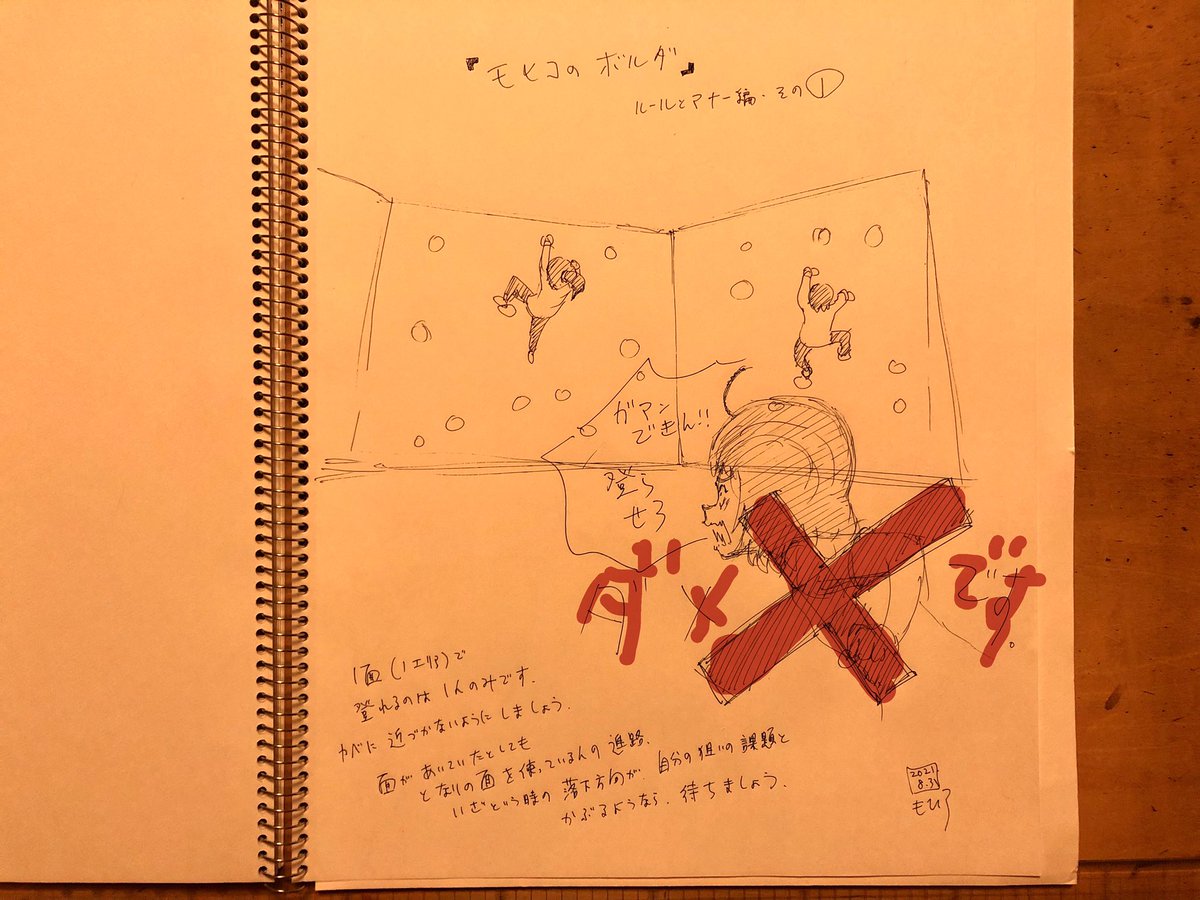 『モヒコの ボルダ』
ルールとマナー編・その①
ガマン
できん!!
登ら
せろ
ダメ
です。
1面(1エリア)で
登れるのは 1人のみです.
カベに 近づかないように しましょう.
面が あいていたとしても
となりの面を使っている人の 進路.
いざという時の 落下方向が、自分の狙いの課題と
かぶるようなら、待ちましょう.
2021
8.31